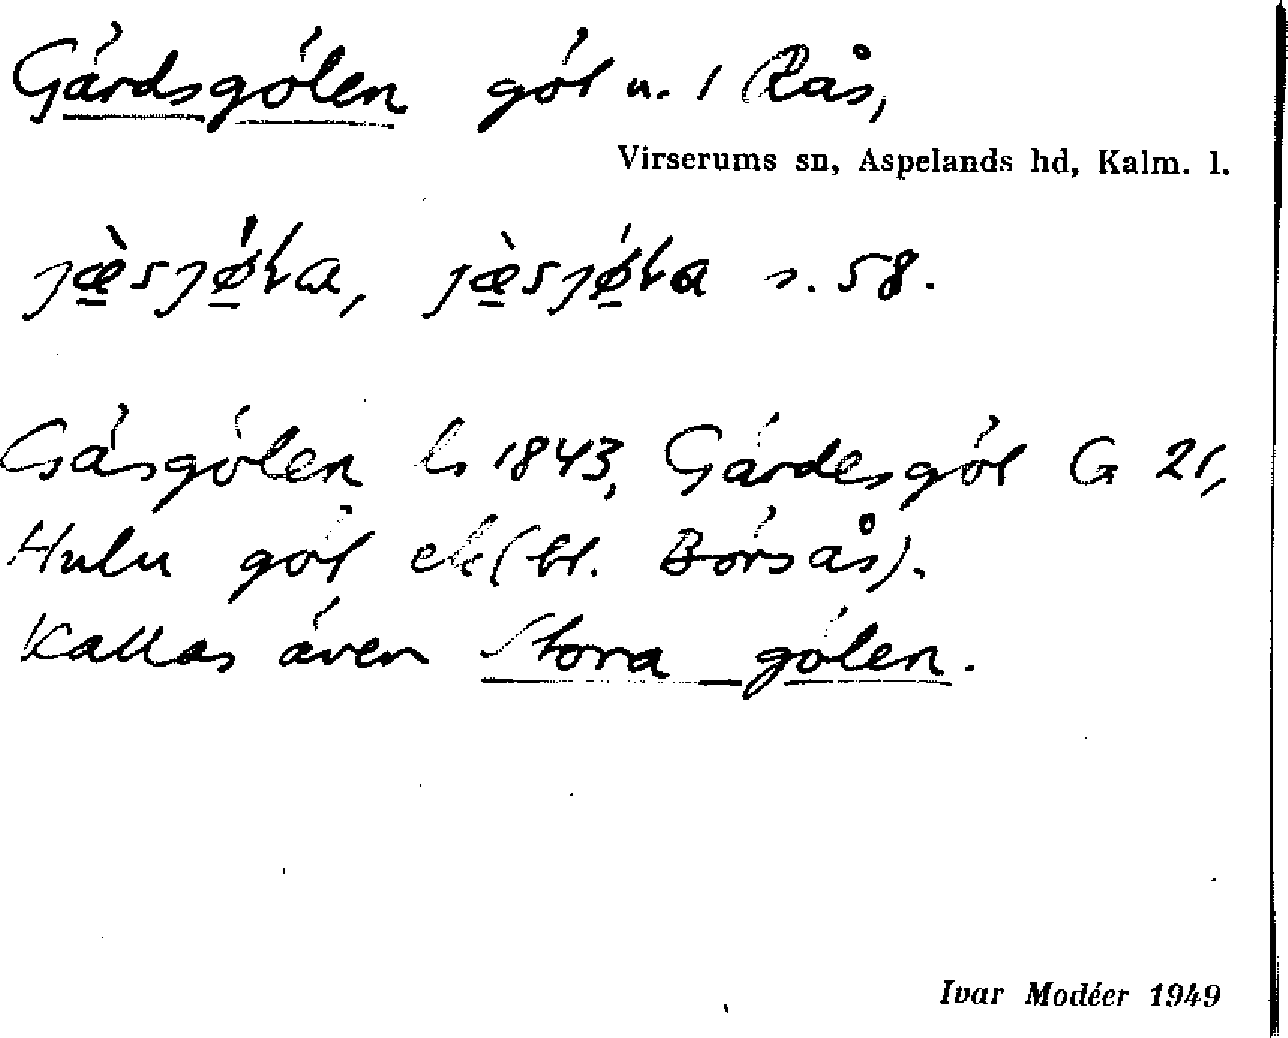 Gärdsgölen göl u. 1 Rås,
Virserums sn, Aspelands hd, Kalm. l.
s. 58.
Gäsgölen 1843, Gärdesgöl G 21,
Hulu göl ek (bl. Börsås).
Kallas även Stora gölen.
Ivar Modéer 1949